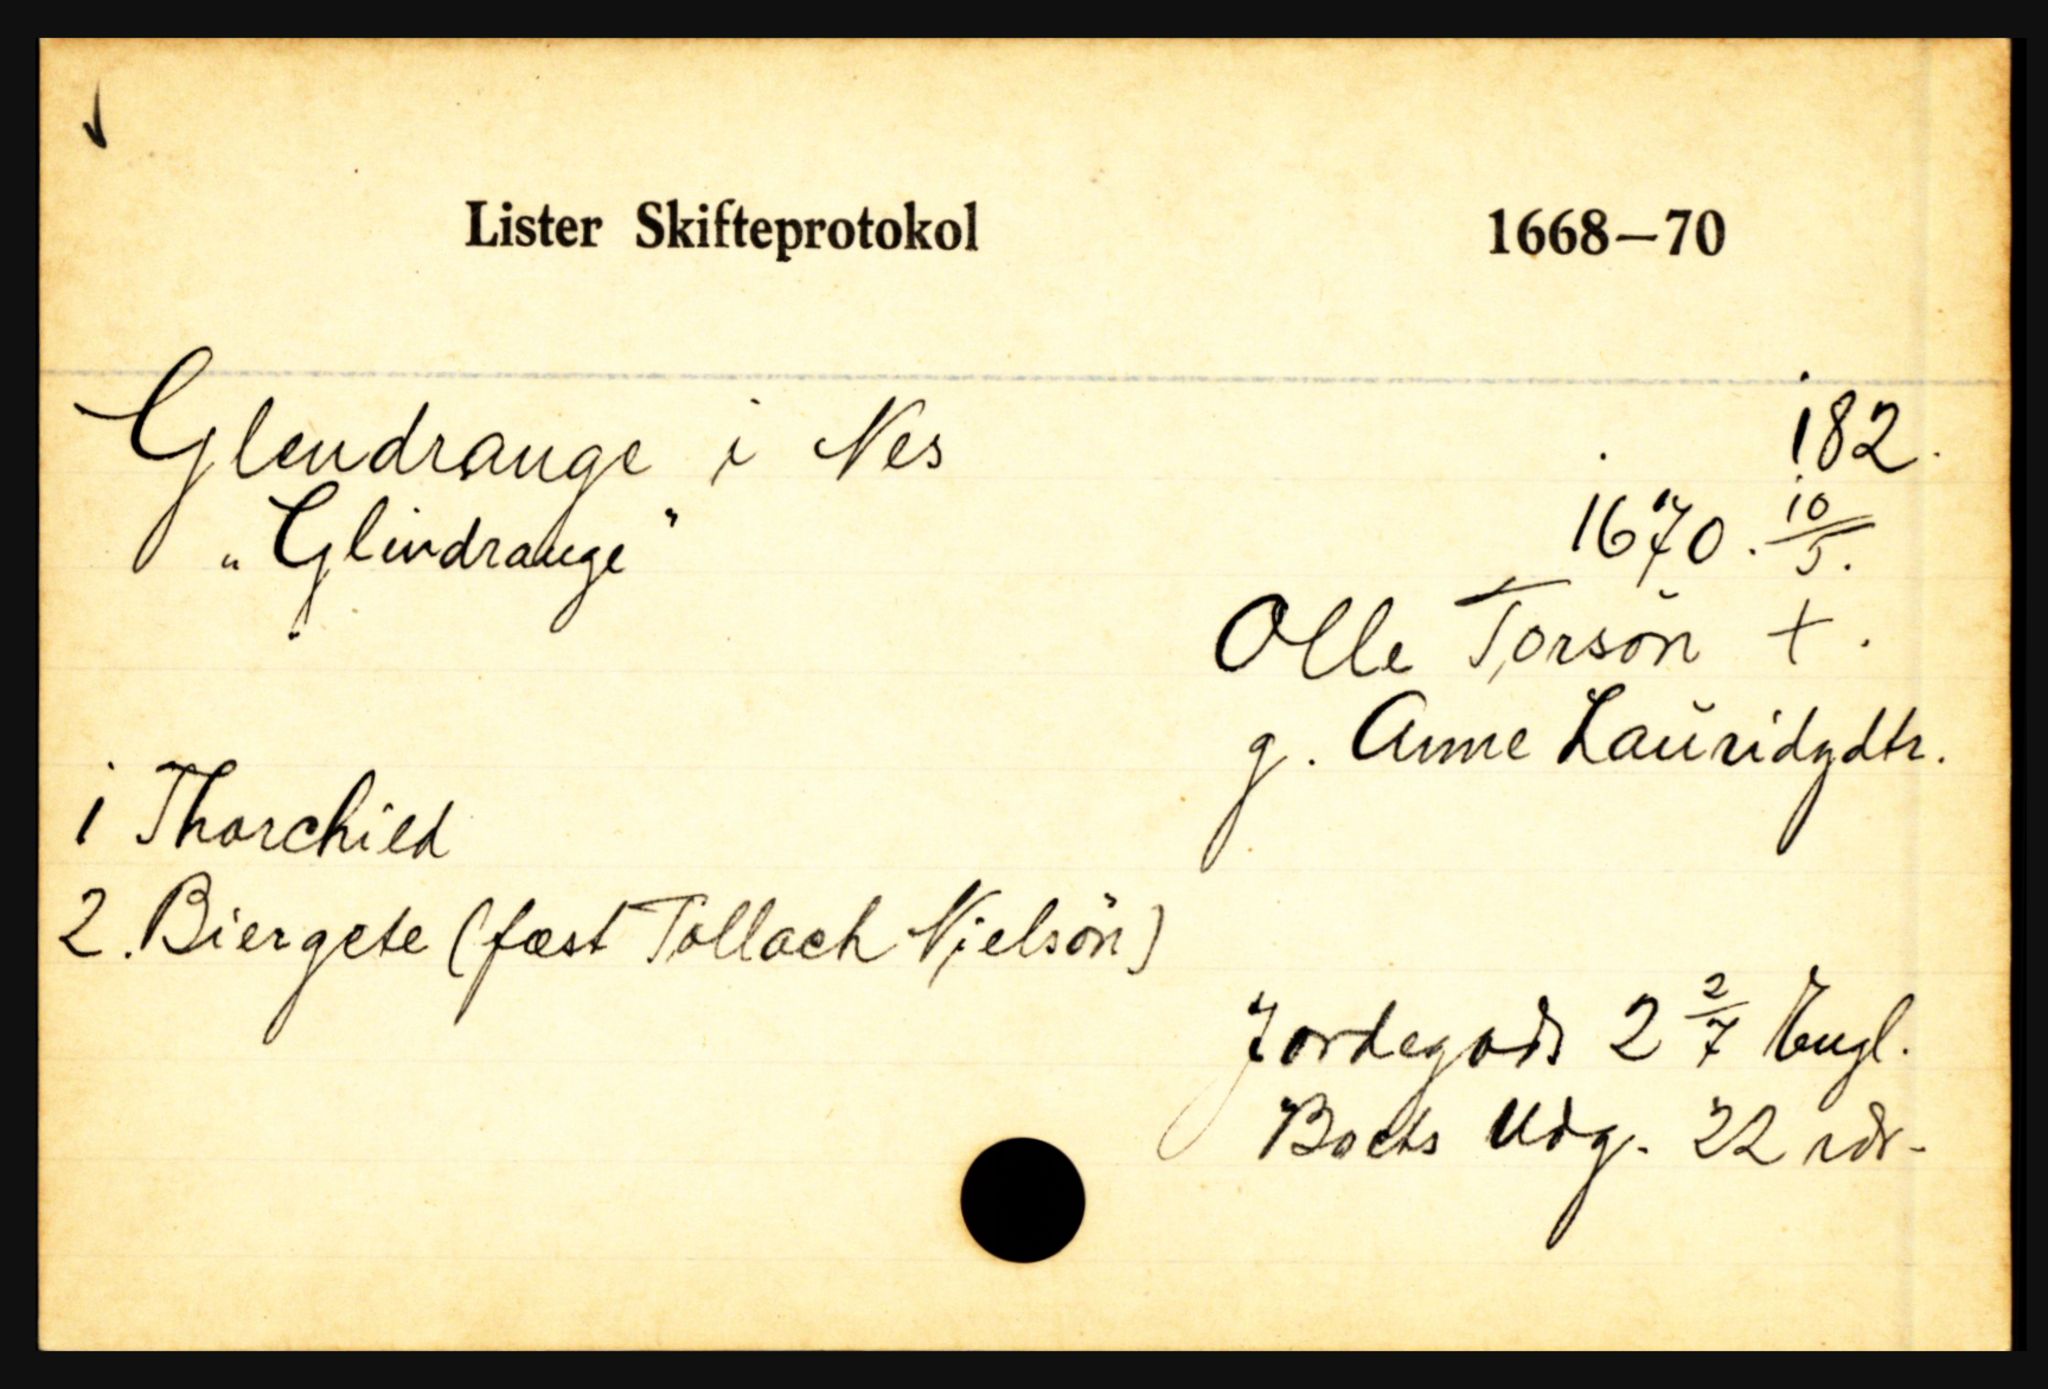 Lister Skifteprotokol 1668—70
Glendrange i Nes 182.
"Glindrange" 1670. 10/5.
Olle Torsön +.
g. Anne Lauridzdtr.
1 Thorchild
2. Biergete (fæst Tollach Nielsön)
Jordegods 2 2/7 Engl.
Boets Udg. 22 rdr.